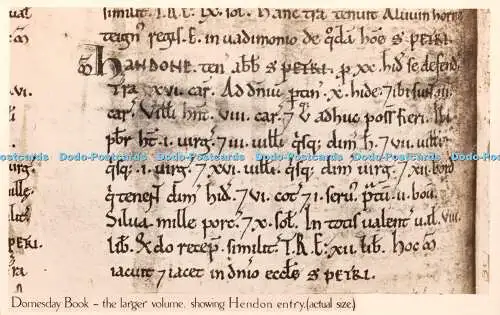 similit T.R.E. lx. sol. Hanc tra tenuit Aluuin horne
teign regis E. in uadimonio de qda hoe S PETRI.
HANDONE. ten abb S PETRI. p xx. hid se defend.
Tra xvi. car. Ad dniu ptin x. hide. 7 ibi sunt iii.
car. Villi hnt viii. car. 7 v. adhuc poss fieri. Ibi
pbr ht i. virg. 7 iii. uilli qsq; dim h. 7 vii. uilli
qsq; i. uirg. 7 xvi. uilli qsq; dim uirg. 7 xii. bord
q tenent dim hid. 7 vi. cot 7 i. seru. ptu ii. bou.
Silua mille porc. 7 x. sol. In totis ualent ual. viii.
lib. Qdo recep similit. T.R.E. xii. lib. Hoc m
iacuit 7 iacet in dnio eccle S PETRI.
uirg.
uille
PETRI.
Dodo-Postcards Dodo-Postcards Dodo-Postcards Dodo-Postcards
Domesday Book – the larger volume, showing Hendon entry.(actual size.)